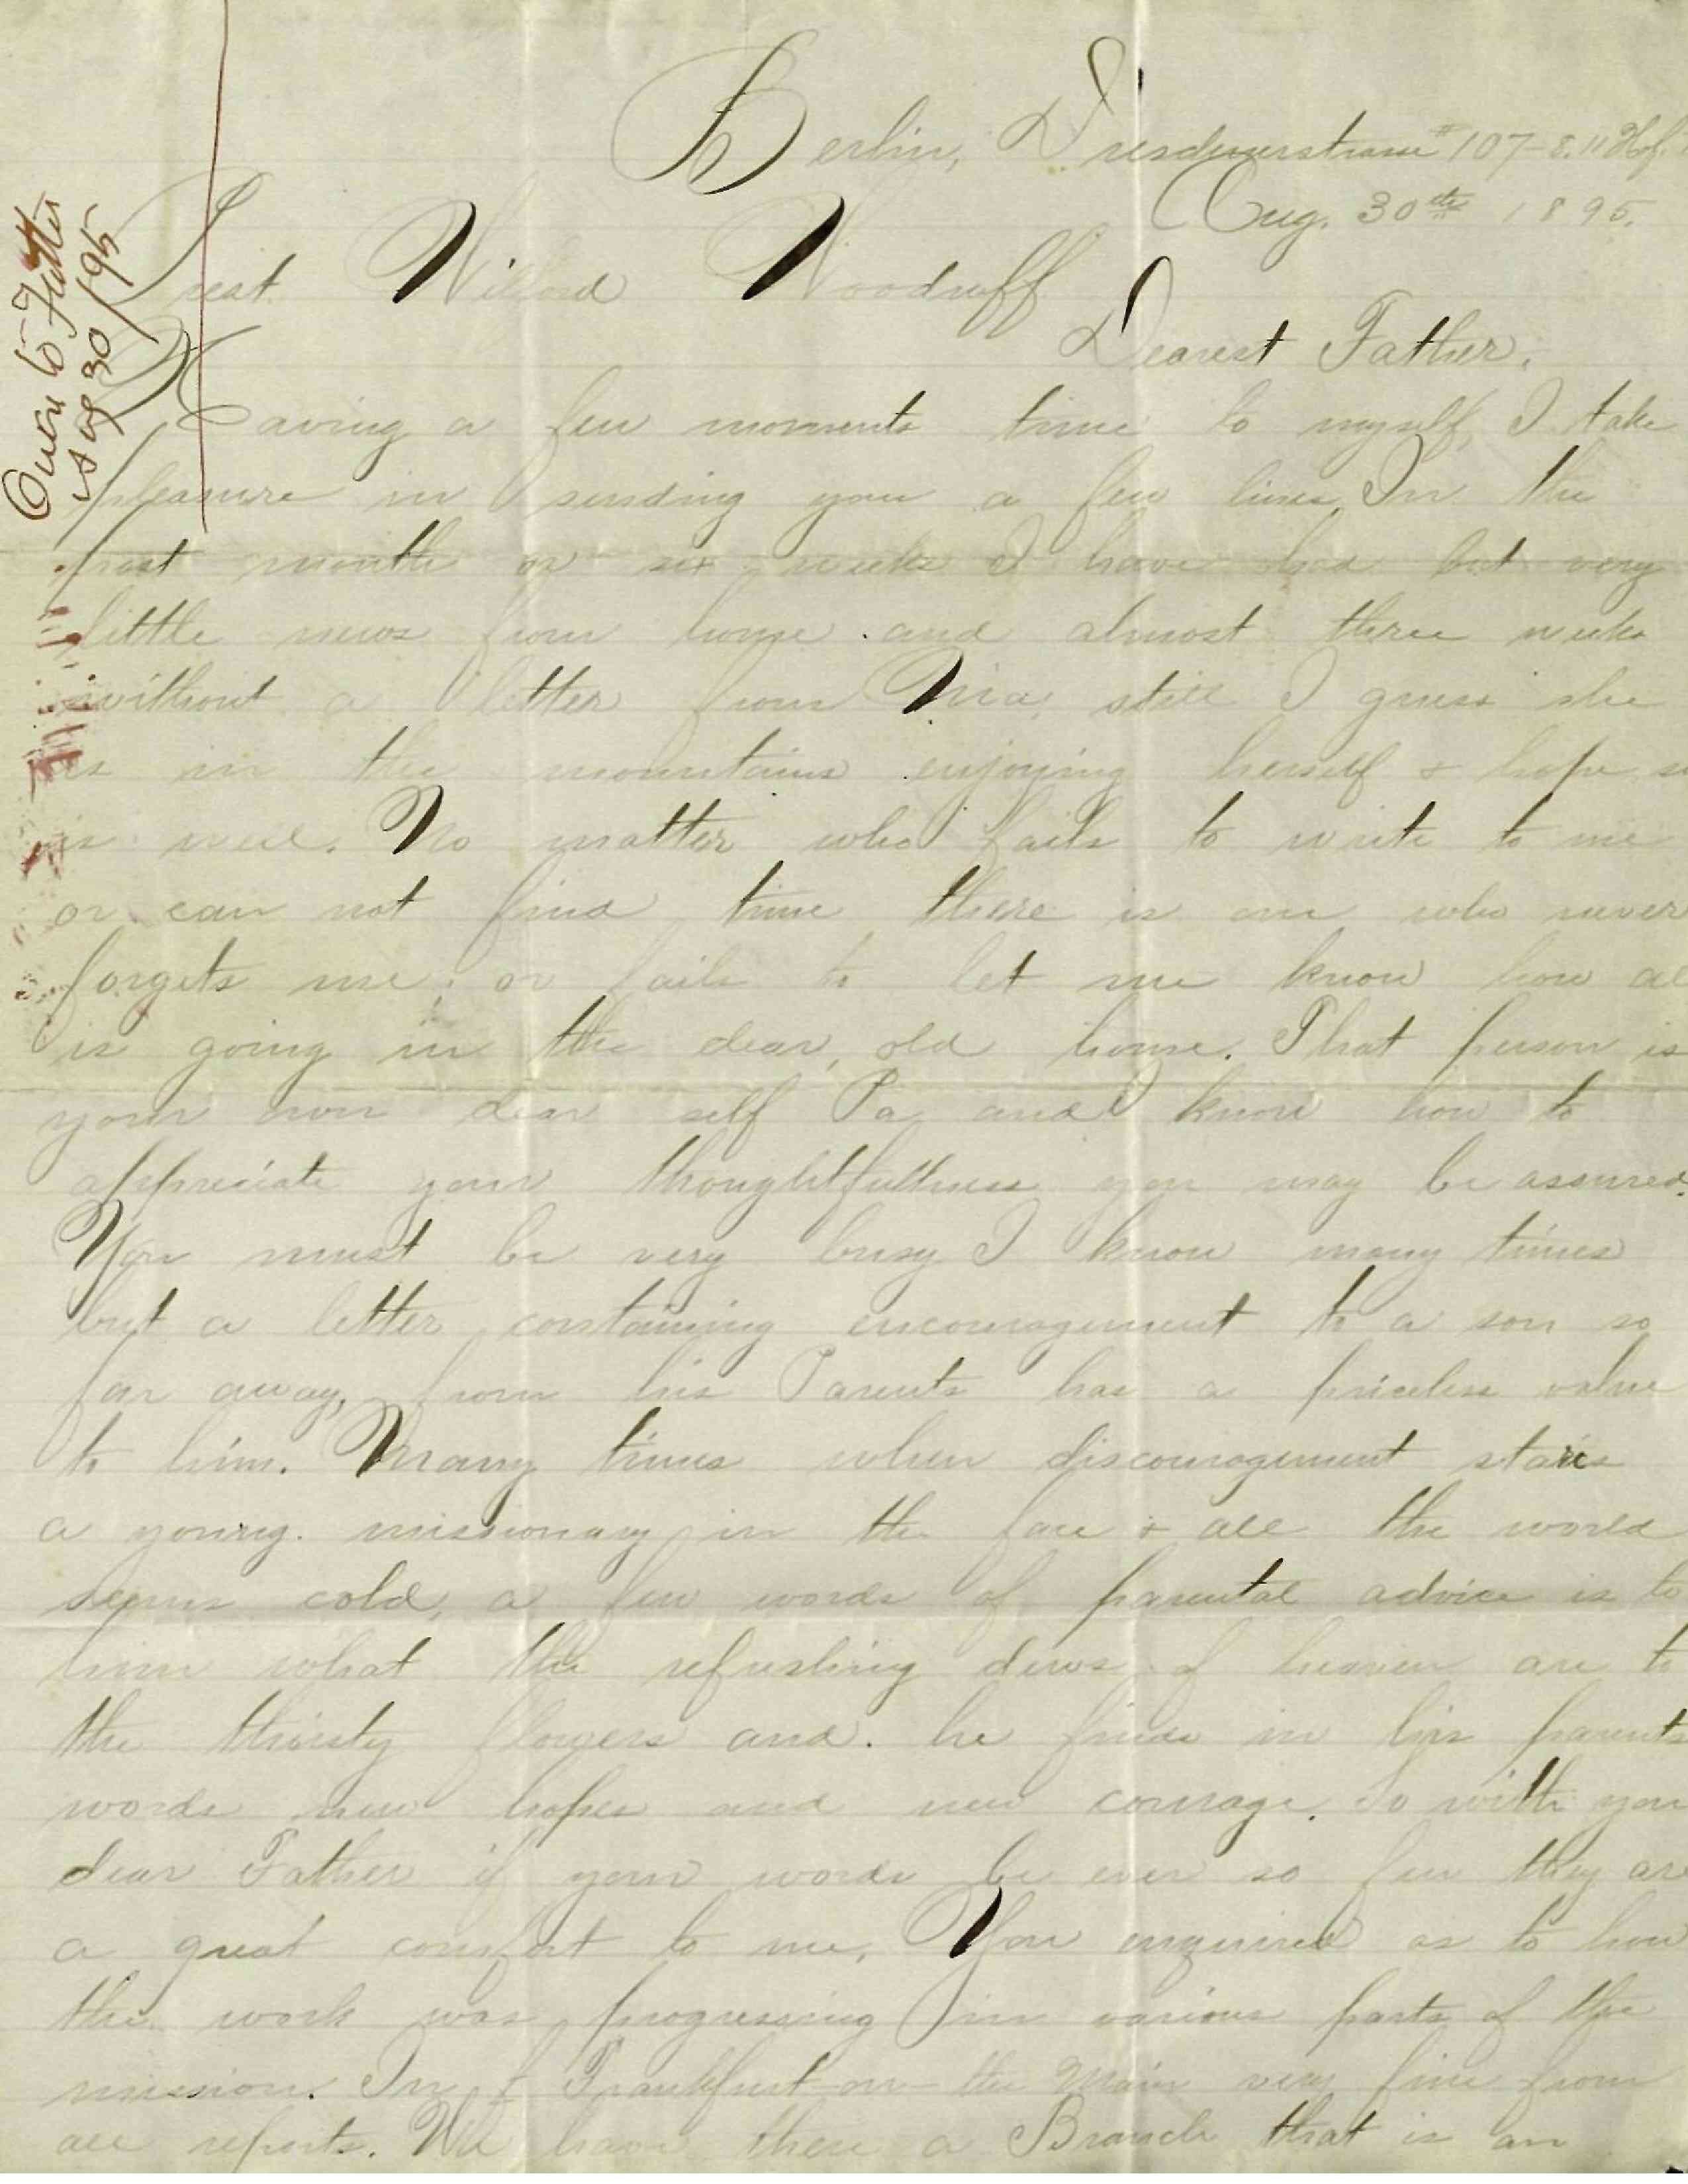 Berlin, Dresdenerstrasse #107-8. II Hof.
Aug. 30th 1895.
Prest. Wilford Woodruff
Dearest Father.
Having a few moments time to myself, I take
pleasure in sending you a few lines. In the
past month or six weeks I have had but very
little news from home and almost three weeks
without a letter from Ma, still I guess she
is in the mountains enjoying herself & hope
is well. No matter who fails to write to me
or can not find time there is one who never
forgets me, or fails to let me know how al
is going in the dear, old home. That person is
your own dear self Pa and I know how to
appreciate your thoughtfullness you may be assured.
You must be very busy I know many times
but a letter containing encouragement to a son so
far away, from his Parents has a priceless value
to him. Many times when discouragement stares
a young missionary in the face & all the world
seems cold, a few words of parental advice is to
him what the refreshing dews of heaven are to
the thirsty flowers and he finds in his parents
words new hopes and new courage. So with you
dear Father if your words be ever so few they are
a great comfort to me. You enquired as to how
the work was progressing in various parts of the
mission. In Frankfurt on the Main very fine from
all reports. We have there a Branch that is an
Owen to Father
Aug 30/95